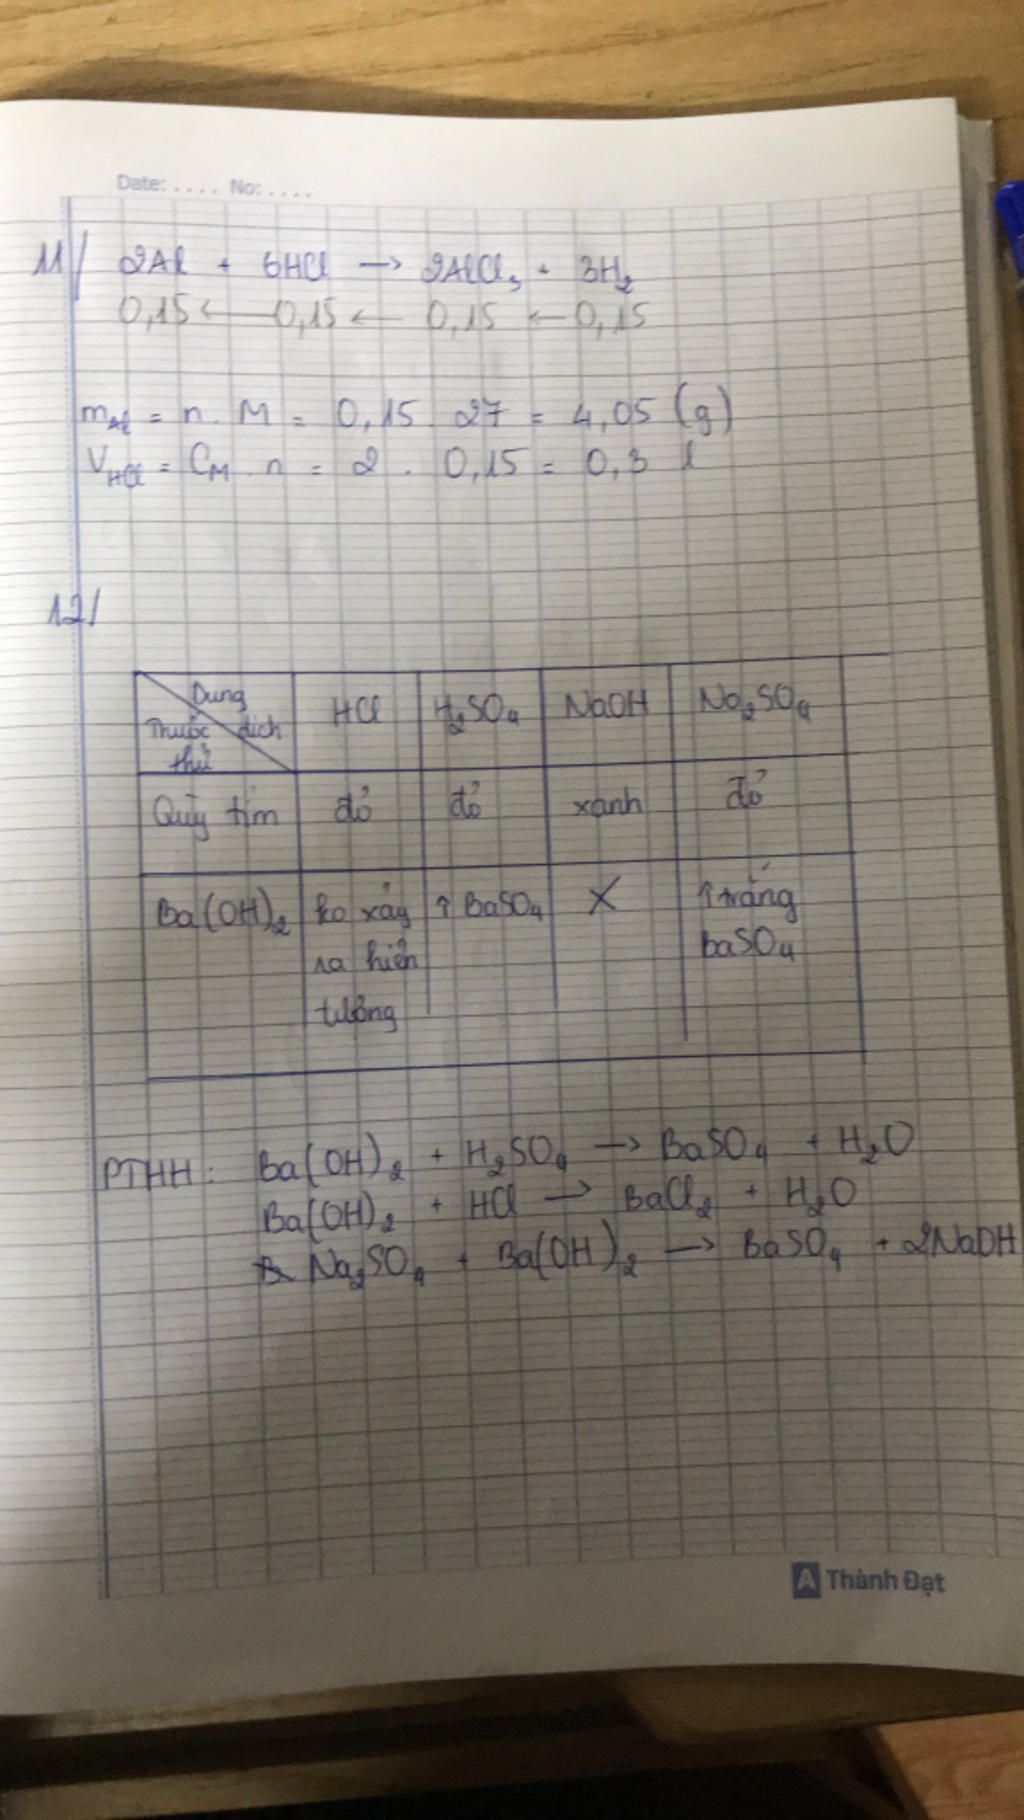 Date: .... No: ....
11/ 2Al + 6HCl → 2AlCl₃ + 3H₂
0,15 ← 0,15 ← 0,15 ← 0,15
mAl = n . M = 0,15 . 27 = 4,05 (g)
VHCl = CM . n = 2 . 0,15 = 0,3 l
12/
Dung dịch Thuốc thử HCl H₂SO₄ NaOH Na₂SO₄
Quỳ tím đỏ đỏ xanh đỏ
Ba(OH)₂ ko xảy ↑ BaSO₄ X ↑ trắng
ra hiện baSO₄
tượng
PTHH: Ba(OH)₂ + H₂SO₄ → BaSO₄ + H₂O
Ba(OH)₂ + HCl → BaCl₂ + H₂O
Na₂SO₄ + Ba(OH)₂ → BaSO₄ + 2NaOH
A Thành Đạt